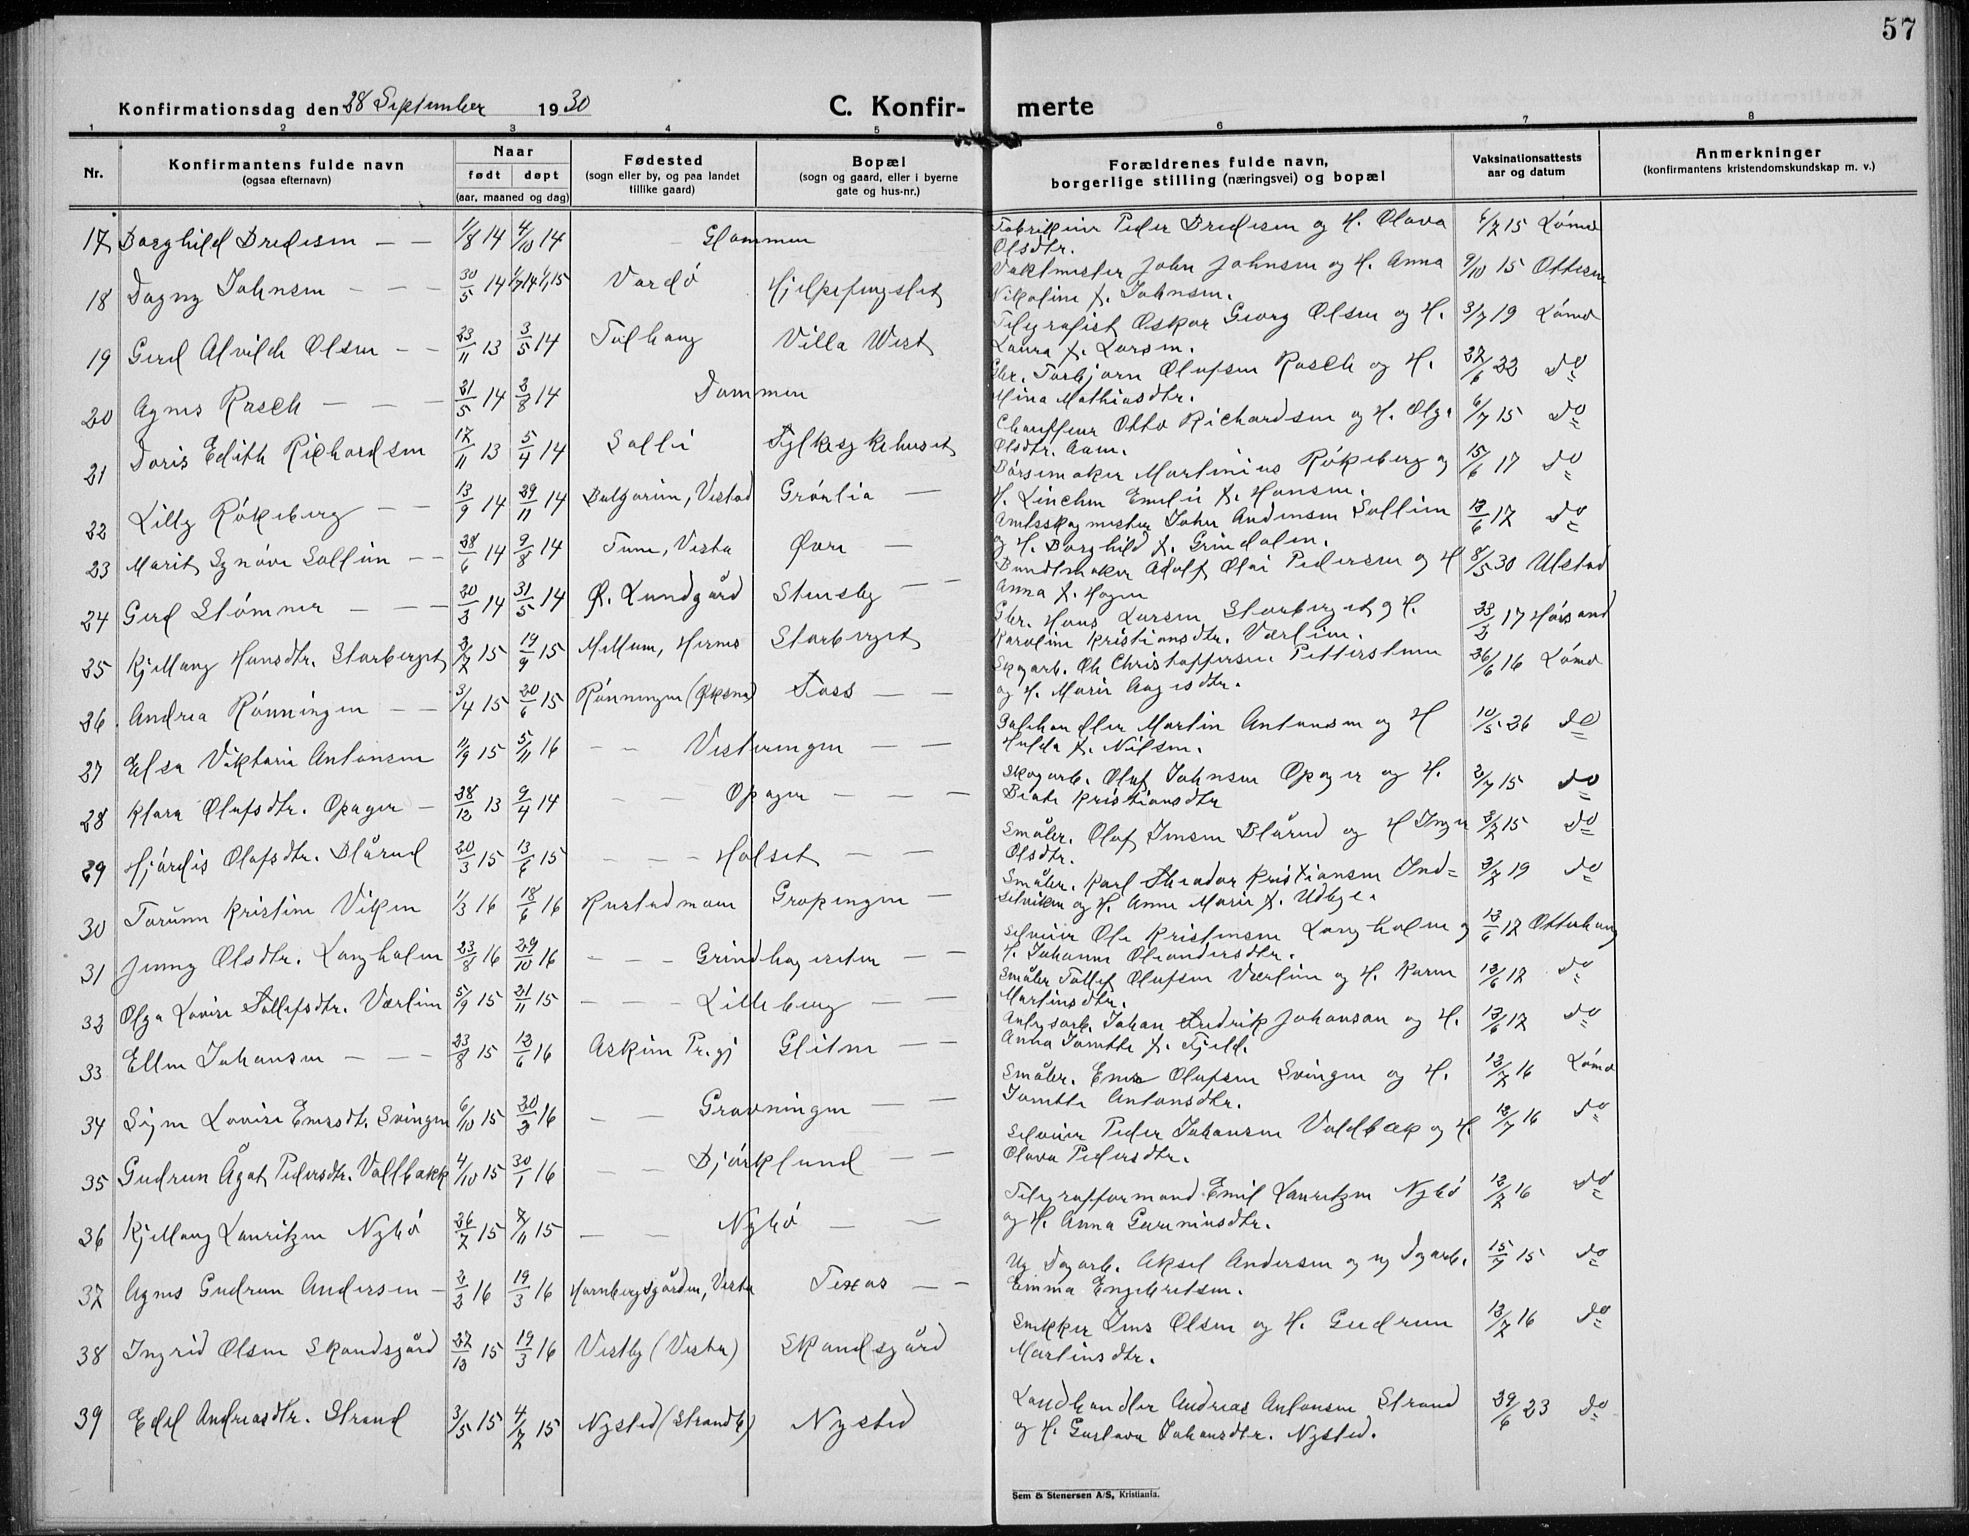 57
Konfirmationsdag den 28 September 1930
C. Konfirmerte
1 2 3 4 5 6 7 8
Nr.
Konfirmantens fulde navn
(ogsaa efternavn)
Naar
født døpt
(aar, maaned og dag)
Fødested
(sogn eller by, og paa landet
tillike gaard)
Bopæl
(sogn og gaard, eller i byerne
gate og hus-nr.)
Forældrenes fulde navn,
borgerlige stilling (næringsvei) og bopæl
Vaksinationsattests
aar og datum
Anmerkninger
(konfirmantens kristendomskundskap m. v.)
17 Borghild Bredesen — — 1/8 14 4/10 14 — Glommen Peder Bredesen og H. Olava 6/7 15 Lömo
Olsdtr.
18 Dagny Johnsen — — — 30/5 14 Vardö Hjelpefengslet Vaktmester John Johnsen og H. Anna 9/10 15 Ottesen
Nikoline f. Johnsen.
19 Gerd Alvilde Olsen — — 23/11 13 3/5 14 Tolhaug Villa West Telegrafist Oskar Georg Olsen og H. 3/7 19 Lömo
Laura f. Larsen.
20 Agnes Rasch — — — 31/5 14 2/8 14 Dammen Gbr. Torbjørn Olufsen Rasch og H. 27/6 22 do
Mina Mathiasdtr.
21 Doris Edith Richardsen 17/11 13 5/4 14 Sollii Fylkesykehuset Chauffeur Otto Richardsen og H. Olga 6/7 15 do
Olsdtr. Aam.
22 Lilly Rökeberg — — 13/9 14 29/11 14 Bulgarien, Vestad Grönlia — Börsemaker Martinius Rökeberg og 15/6 17 do
H. Linchen Emelie f. Hansen.
23 Marit Synöve Sollien — — 28/6 14 9/8 14 Tune, Vestad Øvre — Amtsskogmester Johan Andersen Sollien 12/6 17 do
og H. Borghild f. Grindalen.
24 Gerd Stömner — — — 20/3 14 31/5 14 Ø. Lundgård Stensby — — Buntmaker Adolf Olai Pedersen og H 8/5 30 Ulstad
Anna f. Hagen
25 Kjellaug Hansdtr. Storberget 2/7 15 19/9 15 Mellum, Hernes Storberget Gbr. Hans Larsen Storberget og H. 23/2 17
Karoline Kristiansdtr. Værlien.
26 Andrea Rönningen — — 3/4 15 20/6 15 Rönningen (Øksna) Foss — — Skogarb. Ole Christoffersen Petterstuen 26/6 16 Lömo
og H. Marie Aagesdtr.
27 Elsa Viktoria Antonsen 11/9 15 5/11 16 — — Vesteringen — — Martin Antonsen og H 10/5 26 do
Hulda f. Nilsen.
28 Klara Olufsdtr. Opager — 28/12 13 9/4 14 — — Opager — — — Skogarb. Oluf Johnsen Opager og H. 2/7 15 do
Beate Kristiansdtr
29 Hjördis Olafsdtr. Blårud 20/3 15 13/6 15 — — — Holset — — Småbr. Olaf Jensen Blårud og H Inga 3/7 15 do
Olsdtr.
30 Torunn Kristine Viken 1/3 16 18/6 16 Rustadmoen Gropingen — Småbr. Karl Theodor Kristiansen Ind= 3/7 19 do
setviken og H. Anne Marie f. Udbye.
31 Jenny Olsdtr. Langholen 23/8 16 29/10 16 — — — Grindhagesetra — — Selveier Ole Kristensen Langholen og 12/6 17 Otterhaug
H. Johanne Oleandersdtr.
32 Olga Lovise Tollefsdtr. Værlien 5/9 15 21/11 15 — — — Lilleberg — — Småbr Tollef Olufsen Værlien og H. Karen 12/6 17 do
Martinsdtr.
33 Ellen Johansen — — — 23/8 15 12/6 16 Askim Pr.gj Glitne — — Anlegsarb. Johan Fredrik Johansen og H. 12/6 17 do
Anna Jonette f. Fjeld.
34 Signe Lovise Enersdtr. Svingen 6/10 15 20/2 16 — — Gravningen — — Småbr. Ener Olufsen Svingen og H. 12/7 16 Lömo
Jonette Antonsdtr.
35 Gudrun Ågot Pedersdtr. Voldbakk 4/10 15 30/1 16 — — Björklund — — Selveier Peder Johansen Voldbæk og H. 12/7 16 do
Olava Pedersdtr.
36 Kjellaug Lauritzen Nybö 26/7 15 7/11 15 — — Nybö — — Telegrafformand Emil Lauritzen Nybö 12/7 16 do
og H. Anna
37 Agnes Gudrun Andersen — 3/2 16 19/3 16 Hornbergsgården, Vestad Texas — — Ug Dagarb. Aksel Andersen og ug Dgarb. 15/7 15 do
Emma Engebretsen.
38 Ingrid Olsen Skandsgård 27/12 15 19/3 16 Vestby (Vestre) Skandsgård Snekker Jens Olsen og H. Gudrun 12/7 16 do
Martinsdtr.
39 Edel Andreasdtr. Strand 3/5 15 4/7 15 Nysted (Strandb) Nysted Landhandler Andreas Antonsen Strand 29/6 23 do
og H. Gustava Johansdtr. Nysted.
Sem & Stenersen A/S, Kristiania.